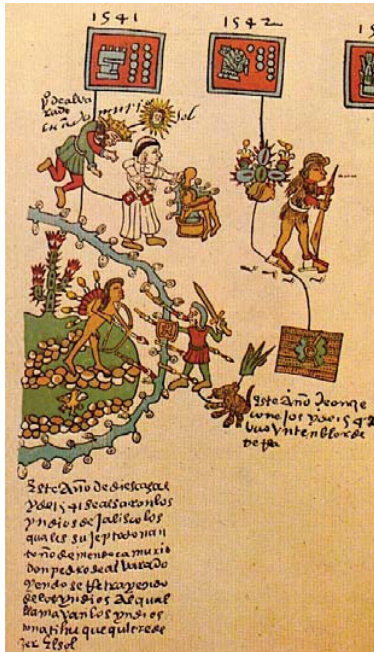 1541
1542
15
po de alva
rado
sol
Este Año de onze
conejos y de 1542
uvo un tenblor de
Este Año de diez casas
y de 1541 se alsaron los
yndios de jalisco los
quales sujepto don an
toño de mendoca murio
don pedro de alvarado
yendo se Retrayendo
de los yndios Al qual
llamavan los yndios
tonatihu que quiere de
zir El sol